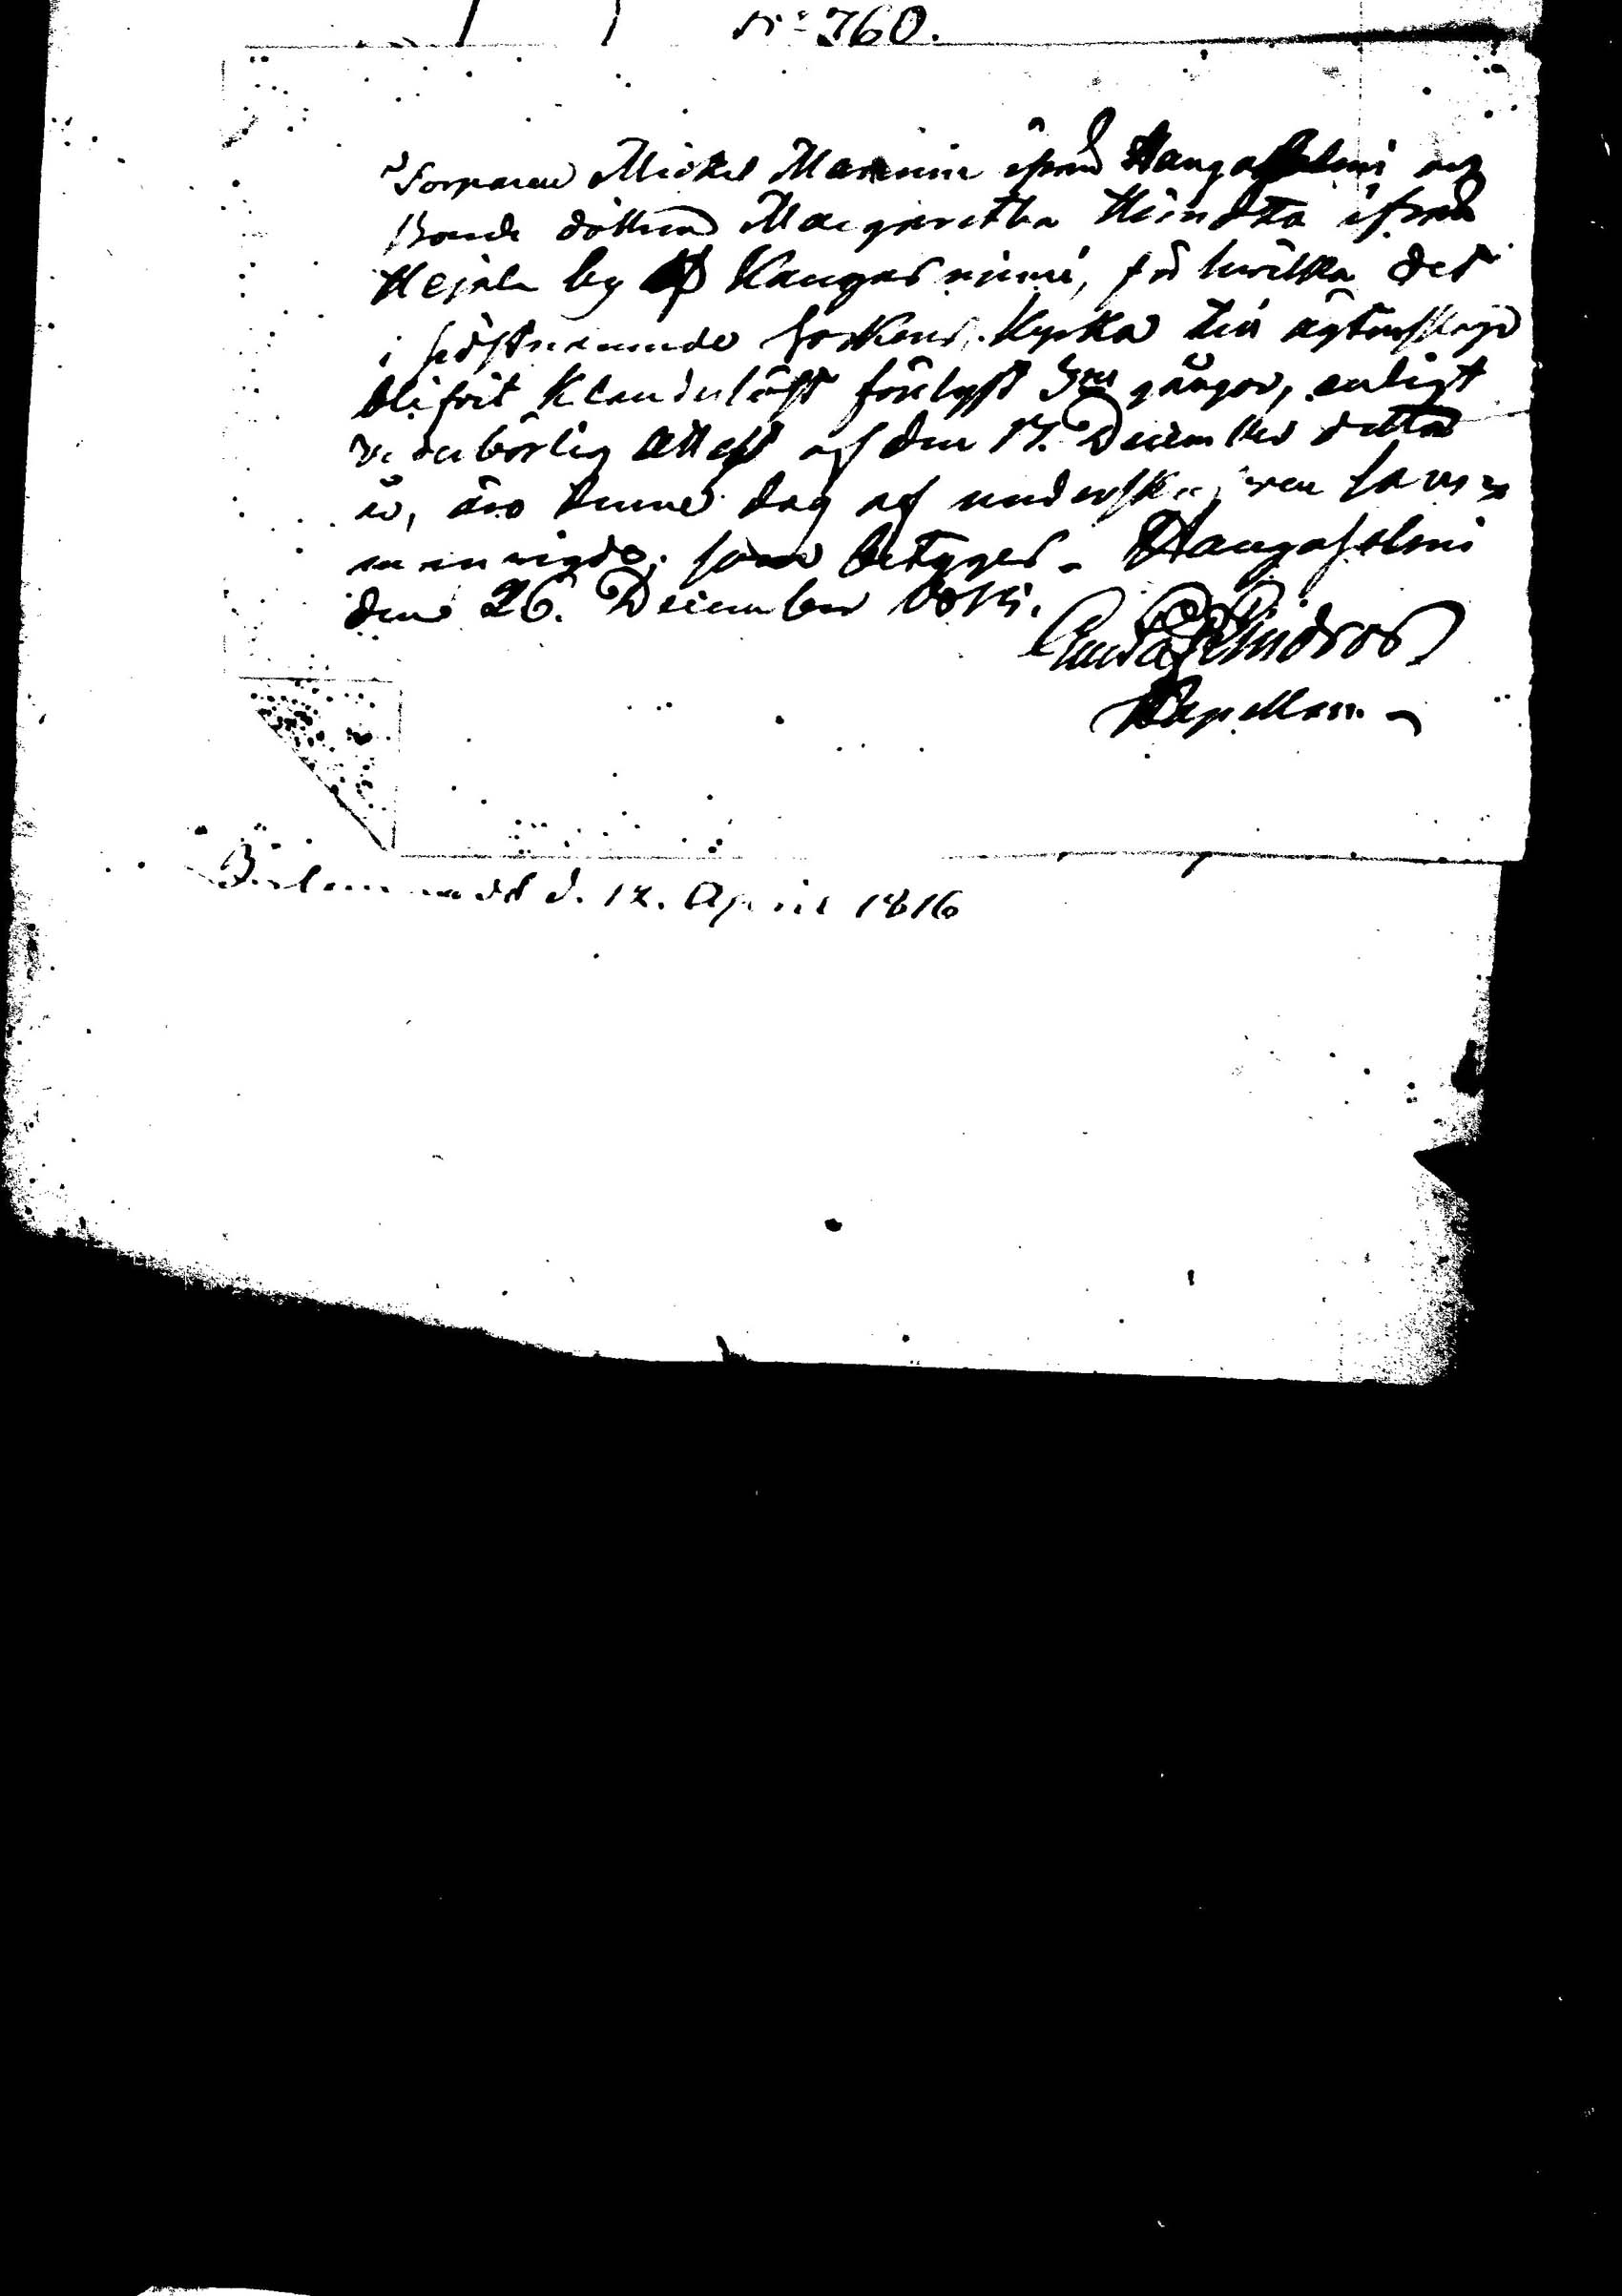 N:o 760.
Torparen Michel Manninen ifrån Haugasalmi och
Bonde dottren Margaretha Händta ifrån
Hejala by af Kangasniemi, för hwilka det
i sistnämnde Sockens Kyrka till ägtenskap
blifvit Klanderlöst förelyst 3ne gånger, enligt
vederbörlig Attest af den 17. December detta
år, äro denne dag af underskrifven sam=
manvigde; som betyges. Haugasalmi
den 26. December 1815.
Lindros
Kapellan.
d. 12. April 1816